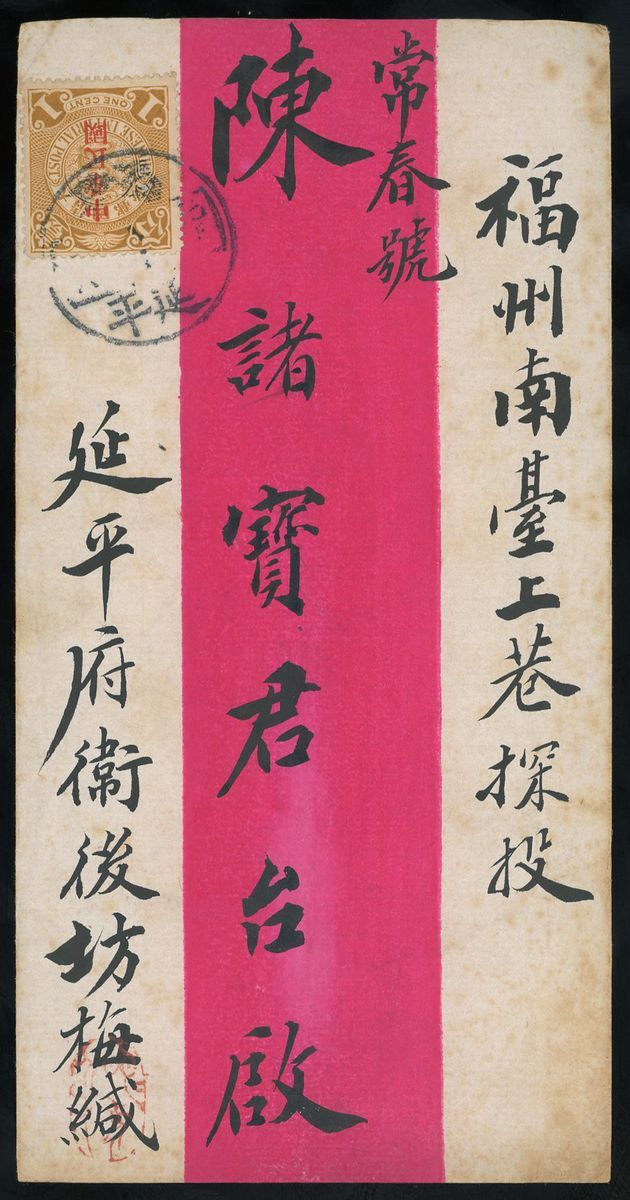 福州南臺上巷探投
常春號
陳諸寶君台啟
延平府衛後坊梅緘
中華民國
CHINESE IMPERIAL POST
1 ONE CENT 1
延平